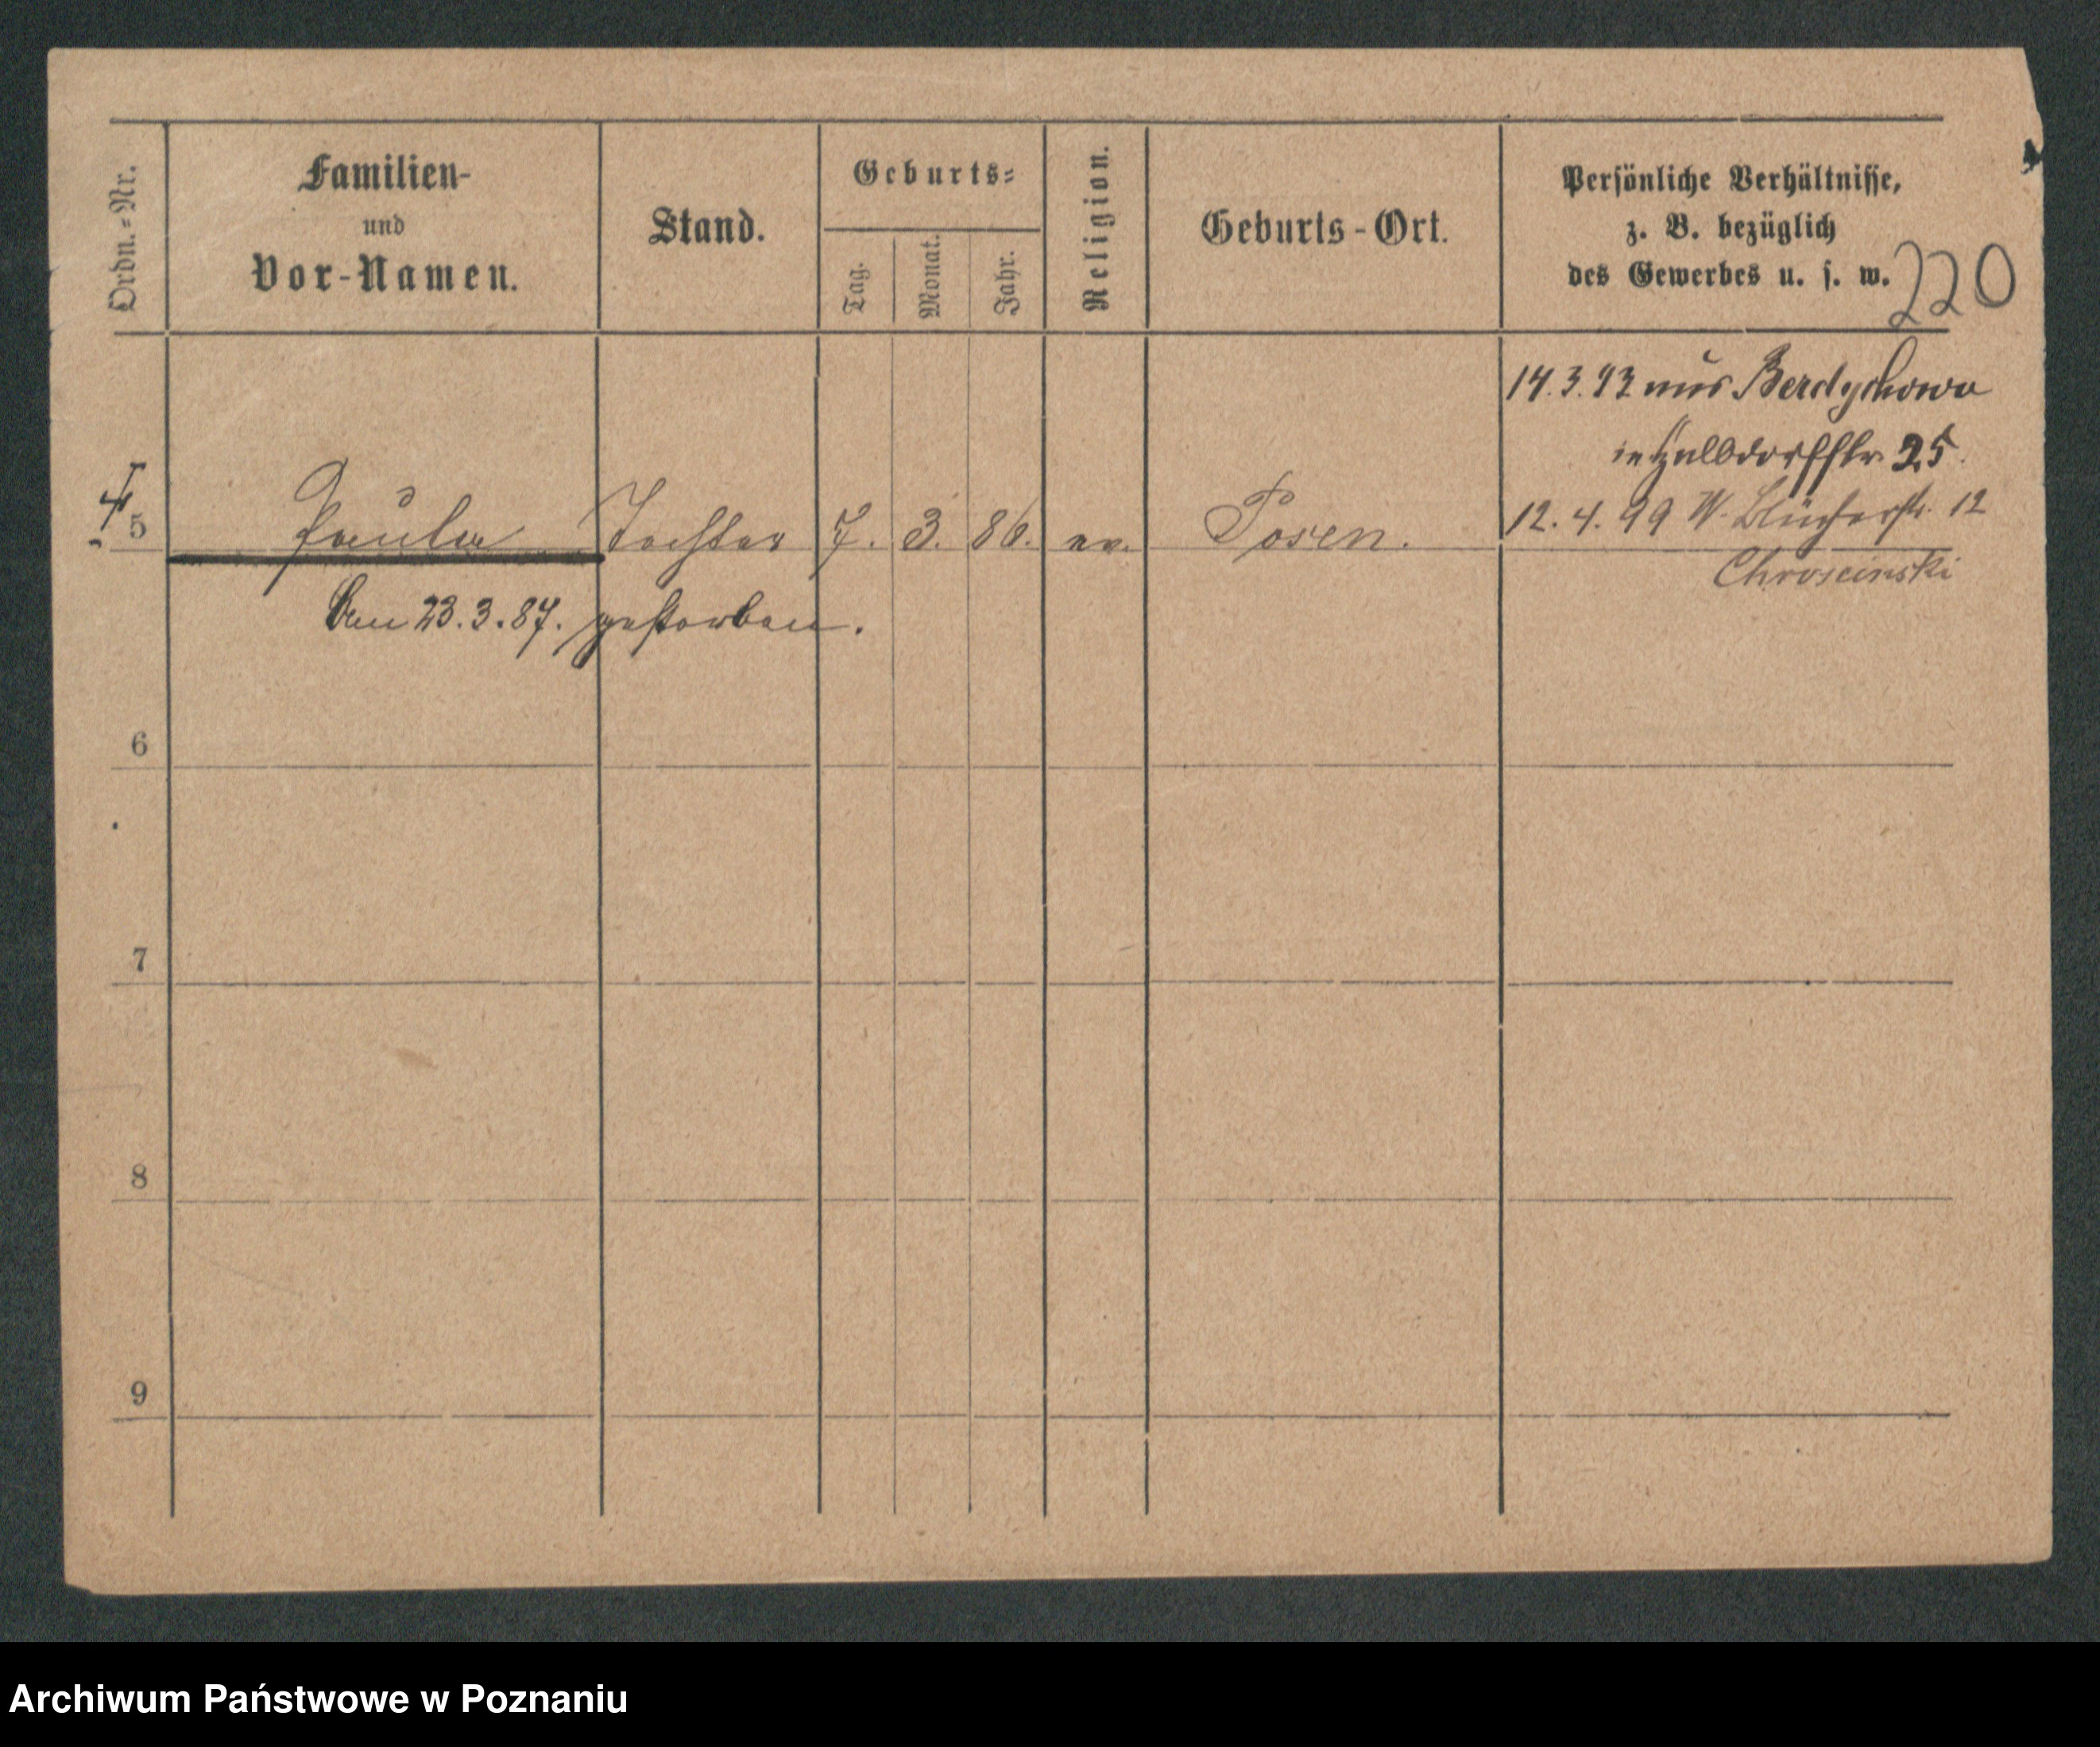 Ordn.=Nr.
Familien-
und
Vor-Namen.
Stand.
Geburts=
Tag.
Monat.
Jahr.
Religion.
Geburts-Ort.
Persönliche Verhältnisse,
z. B. bezüglich
des Gewerbes u. s. w.
220
14.3.93 aus Berdychowo
in Halbdorfstr 25.
12. 4. 99 W. Blücherstr. 12
Chroscinski
4
5
Paula Tochter 7. 3. 86. ev. Posen.
Am 23.3.87. gestorben.
6
7
8
9
Archiwum Państwowe w Poznaniu